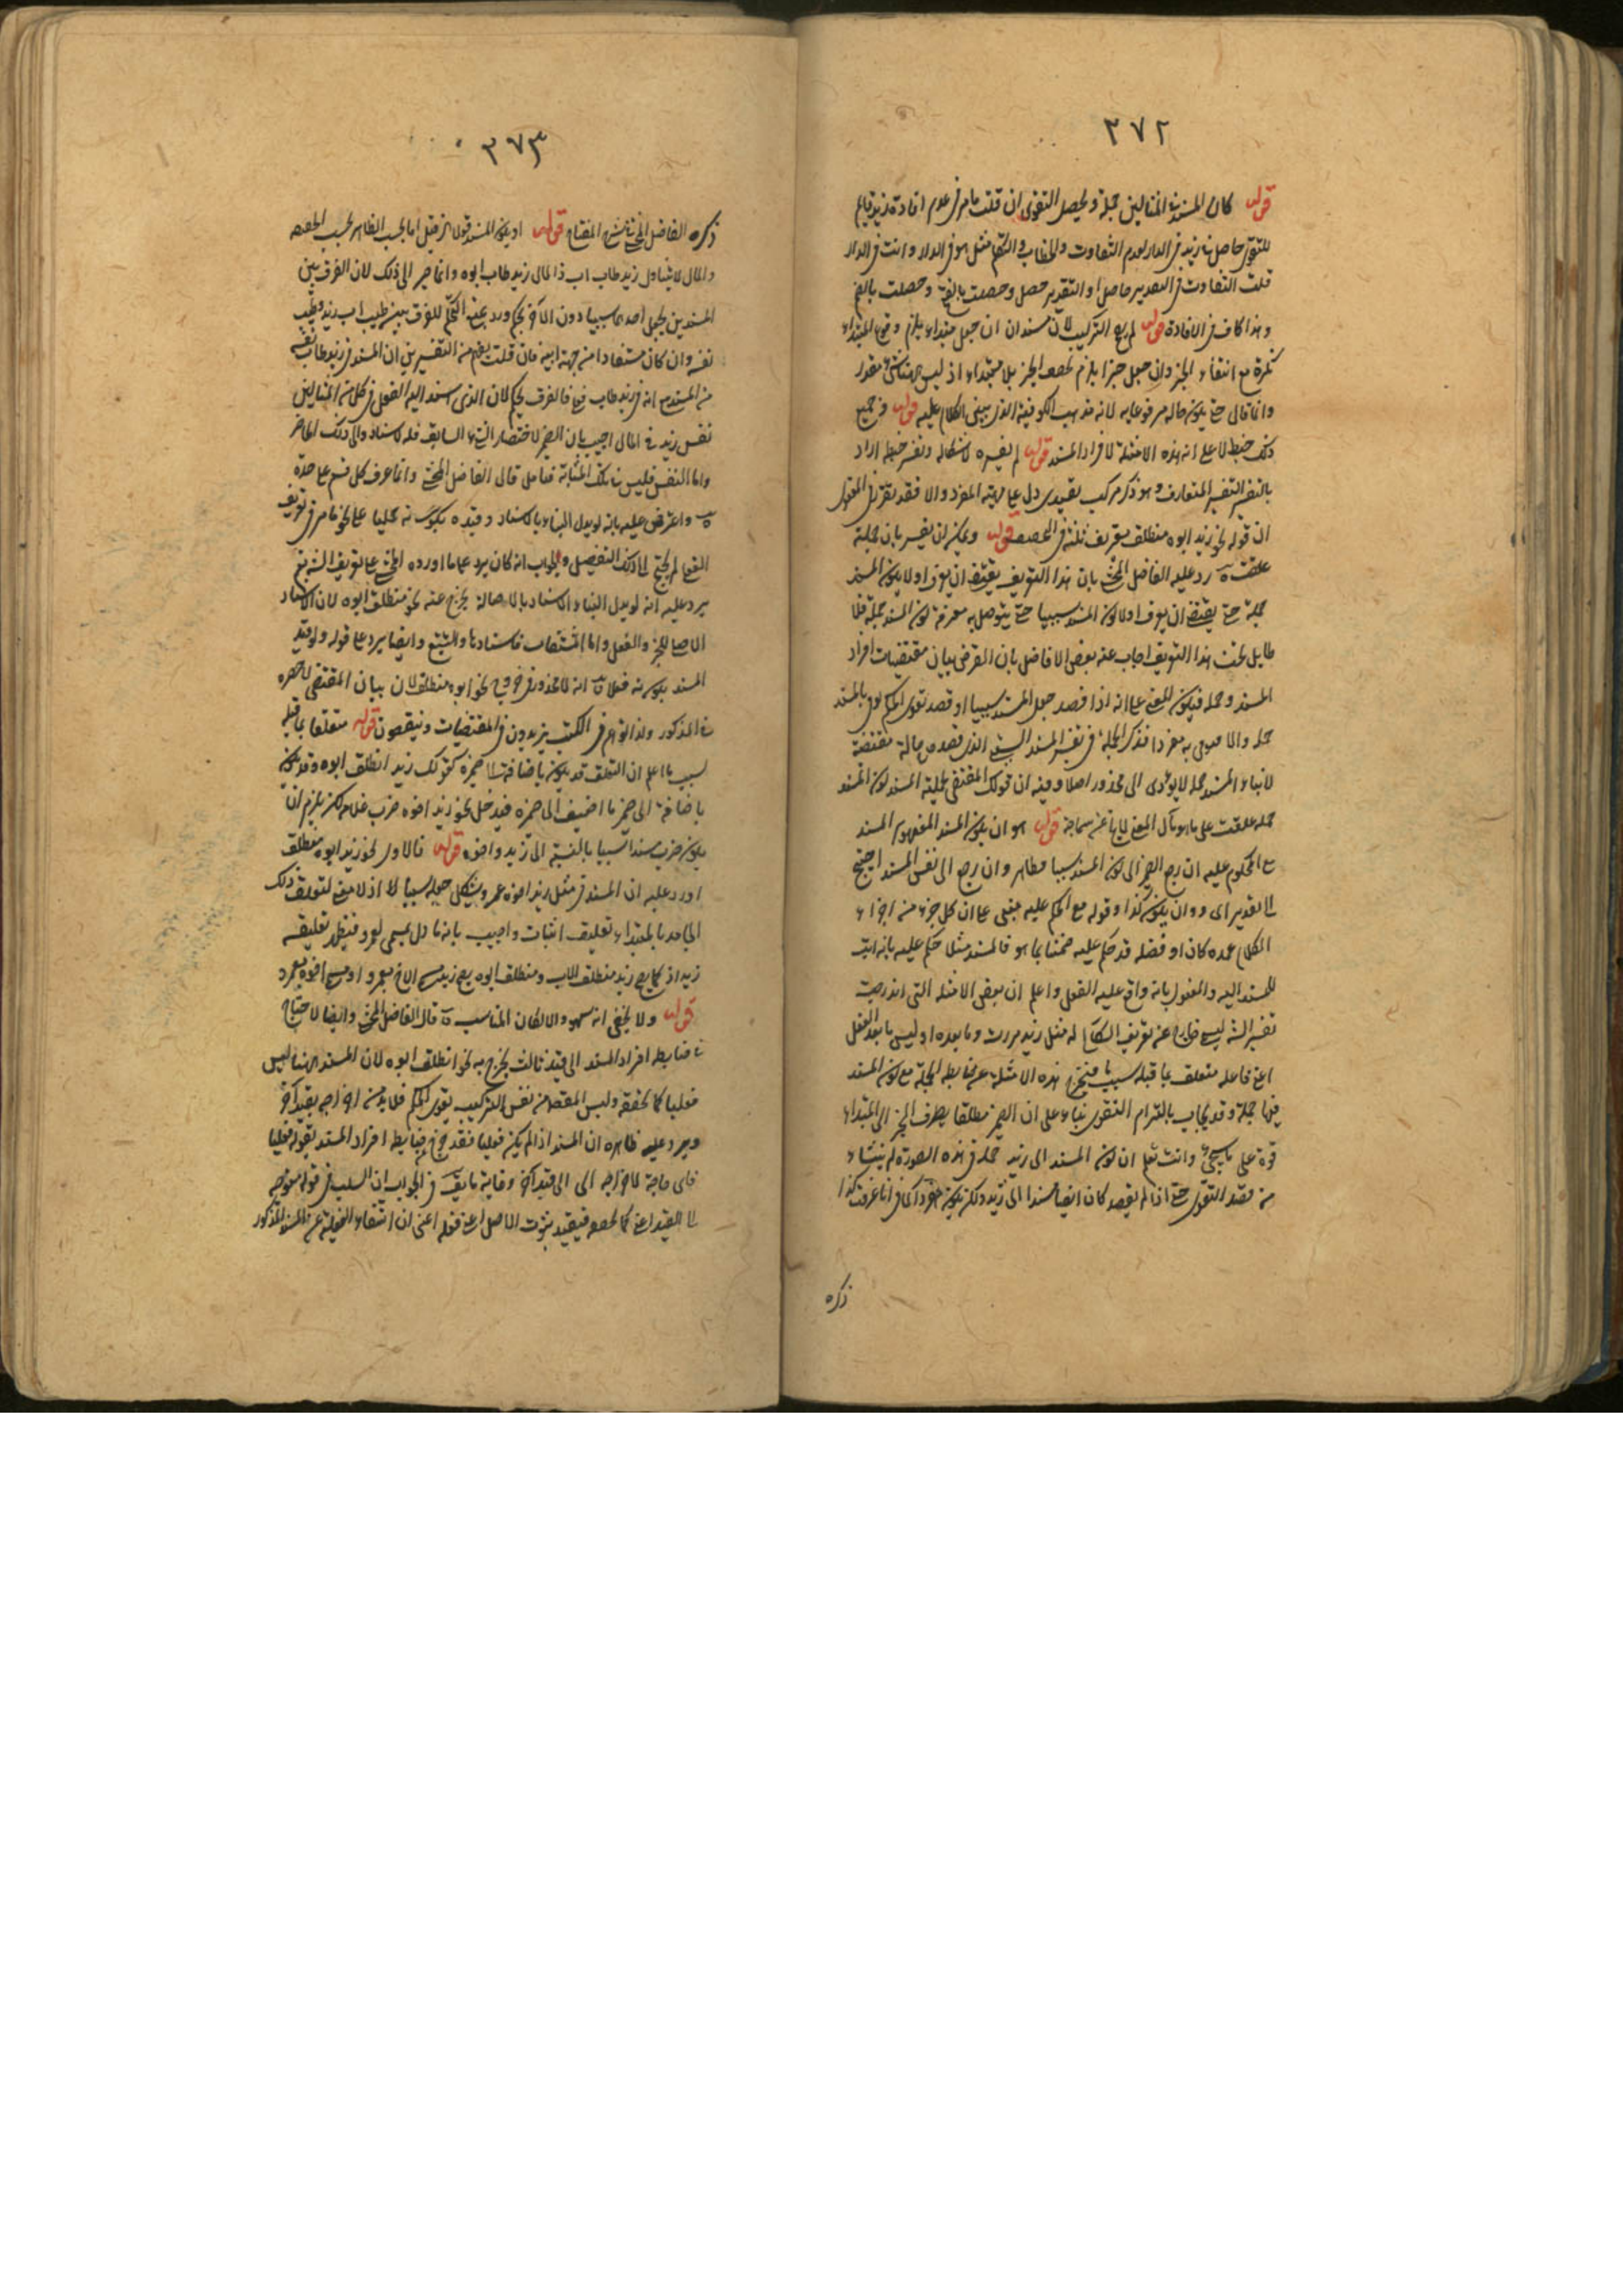 ٣٧٢
قوله كان المسند في المثالين جملة ويحصل التقوى ان قلت ما مر في عدم افادة زيد قايم
للتقوى حاصل في زيد في الدار لعدم التفاوت والخطاب والتكلم مثل هو في الدار وانت في الدار
قلت التفاوت في التقدير حاصل اذ التقدير حصل وحصلت بالفتح وحصلت بالضم
وهذا كاف في الافادة قوله لم يصح التركيب لان مسندان ان جعل مبتداء يلزم وقوع المبتداء
نكرة مع انتفاء الخبر وان جعل خبرا يلزم الخبر بلا مبتداء اذ ليس ههنا شئ مقدر
وانما قال حتى يكون حاله مرفوعا به لانه مذهب الكوفية الذي يبنى الكلام عليه قوله وجميع
ذلك ضبط لاعلى انه هذه الامثلة لافراد المسند قوله لم يفسره لاشكاله وتفسر ضبطه اراد
بالتفسير التفسير المتعارف وهو ذكر مركب تقييدى دل على ماهية المفرد والا فقد
ان قوله نحو زيد ابوه منطلق تعريف قوله ويمكن ان يفسر بانه جملة
علقت رد عليه الفاضل المحشى بان هذا التعريف يقتضى ان يعرف اولا كون المسند
جملة حتى يقتضى ان يعرف اولا كون المسند سببيا حتى يتوصل به معرفة كون المسند جملة فلا
طايل تحت هذا التعريف اجاب عنه بعض الافاضل بان الغرض بيان مقتضيات افراد
المسند وجملة فيكون المعنى على انه اذا قصد جعل المسند سببيا او قصد تقوى الحكم يؤتى بالمسند
جملة والا فيؤتى به مفردا فذكر الجملة في تفسير المسند السببى الذى قصده حالة مقتضية
لايتاء المسند جملة لا يؤدى الى محذور اصلا وفيه ان قولك المقتضى لجملية المسند كون المسند
جملة علقت على ما هو مآل المعنى لا يخلو عن سماجة قوله هو ان يكون المسند المفهوم المسند
مع المحكوم عليه ان رجع الضمير الى كون المسند سببيا فظاهر وان رجع الى نفس المسند احتيج
الى تقدير اى ذو ان يكون كذا وقوله مع الحكم عليه مبنى على ان كل جزء من اجزاء
الكلام عمدة كان او فضلة قد حكم عليه ضمنا بما هو فالمسند مثلا حكم عليه بانه ثابت
للمسند اليه والمفعول بانه واقع عليه الفعل واعلم ان بعض الامثلة التى اندرجت
تفسير الش ليس خارج عن تعريف السكاكى له مثل زيد مررت وما بعده اذ ليس ما بعد الفعل
اعنى فاعله متعلق بما قبله بسبب ما فيخرج هذه الامثلة عن ضابطة الجملة مع كون المسند
فيها جملة وقد يجاب بالتزام التقوى بناء على ان الضمير مطلقا يصرف الخبر الى المبتداء
قوة على ما سيجئ وانت تعلم ان كون المسند الى زيد جملة في هذه الصورة لم ينشاء
من قصد التقوى حتى اذا لم يقصد كان ايضا مسندا الى زيد ولكن يكون مفردا كما في انا عرفت كذا
ذكره
٣٧٣
ذكره الفاضل المحشى في شرح المفتاح قوله او يكون المسند قولان قيل اما بحسب الظاهر بحسب الحقيقة
والمال لا يتناول زيد طاب اب ذالمال زيد طاب ابوه وانما صير الى ذلك لان الفرق بين
المسندين بجعل احدهما سببيا دون الآخر تحكم ورد بمنع التحكم للفرق بين طيب اب زيد وطيب
نفسه وان كان مستفادا من جهة ابيه فان قلت يفهم من التفسيرين ان المسند في زيد طاب نفسه
من المسند مع انه في زيد طاب فعلى فالفرق تحكم لان الذى اسند اليه الفعل في كل من المثالين
نفس زيد في المال اجيب بان الضمير لاختصار الشئ السابق فله الاسناد والى ذلك الظاهر
واما النفس فليس بتلك المثابة فتامل قال الفاضل المحشى وانما عرف كل قسم على حدة
واعترض عليه بانه لو بدل البناء بالاسناد وقيده بكونه جمليا على نحو ما مر في تعريف
الفعلى لم يحتج الى ذلك التفصيل والجواب انه كان يرد على ما اورده المحشى على تعريف الش ثم
يرد عليه انه لو بدل البناء الاسناد بالاصالة يخرج عنه نحو منطلق ابوه لان الاسناد
الاصلى للخبر والفعل واما المشتقات فاسنادها بالتبع وايضا يرد على قوله ولو قيد
المسند بكونه فعلا انه لا محذور في خروج نحو ابوه منطلق لان بيان المقتضى لا حصره
في المذكور ولذا تراهم في الكتب يزيدون في المقتضيات وينقصون قوله متعلقا بما قبله
لسبب ما اعلم ان التعلق قد يكون باضافة الى ضميره كقولك زيد انطلق ابوه وقد يكون
باضافة الى ضمير ما اضيف الى ضميره فيدخل نحو زيد اخوه ضرب غلامه لكن يلزم ان
يكون ضرب مسندا سببيا بالنسبة الى زيد واخوه قوله فالاول نحو زيد ابوه منطلق
اورد عليه ان المسند في مثل زيد اخوه عمرو يشكل جعله سببيا اذ لا معنى لتعلق ذلك
الجامد بالمبتداء تعليق اثبات واجيب بانه ماول بمسمى بعمرو فينظر تعليقه
زيد اذ كما يصح زيد منطلق الاب ومنطلق ابوه يصح زيد مسمى الاخ بعمرو او مسمى اخوه بعمرو
قوله ولا يخفى انه سهو والا لكان المناسب قال الفاضل المحشى وايضا لا حتاج
في ضابطة افراد المسند الى قيد ثالث يخرج به نحو انطلق ابوه لان المسند ههنا ليس
فعليا كما حققه وليس المقصد من نفس التركيب تقوى الحكم فلا بد من اخراجه بقيد آخر
ويرد عليه ظاهره ان المسند اذا لم يكن فعليا فقد خرج من ضابطة افراد المسند بقوله فعليا
فاى حاجة لاخراجه الى قيد آخر وغاية ما يقال في الجواب ان السلب في قوله متوجه
الى القيد اعنى فيفيد ثبوت الاصل اعنى فعله اعنى ان انتفاء الفعلية عن المسند المذكور